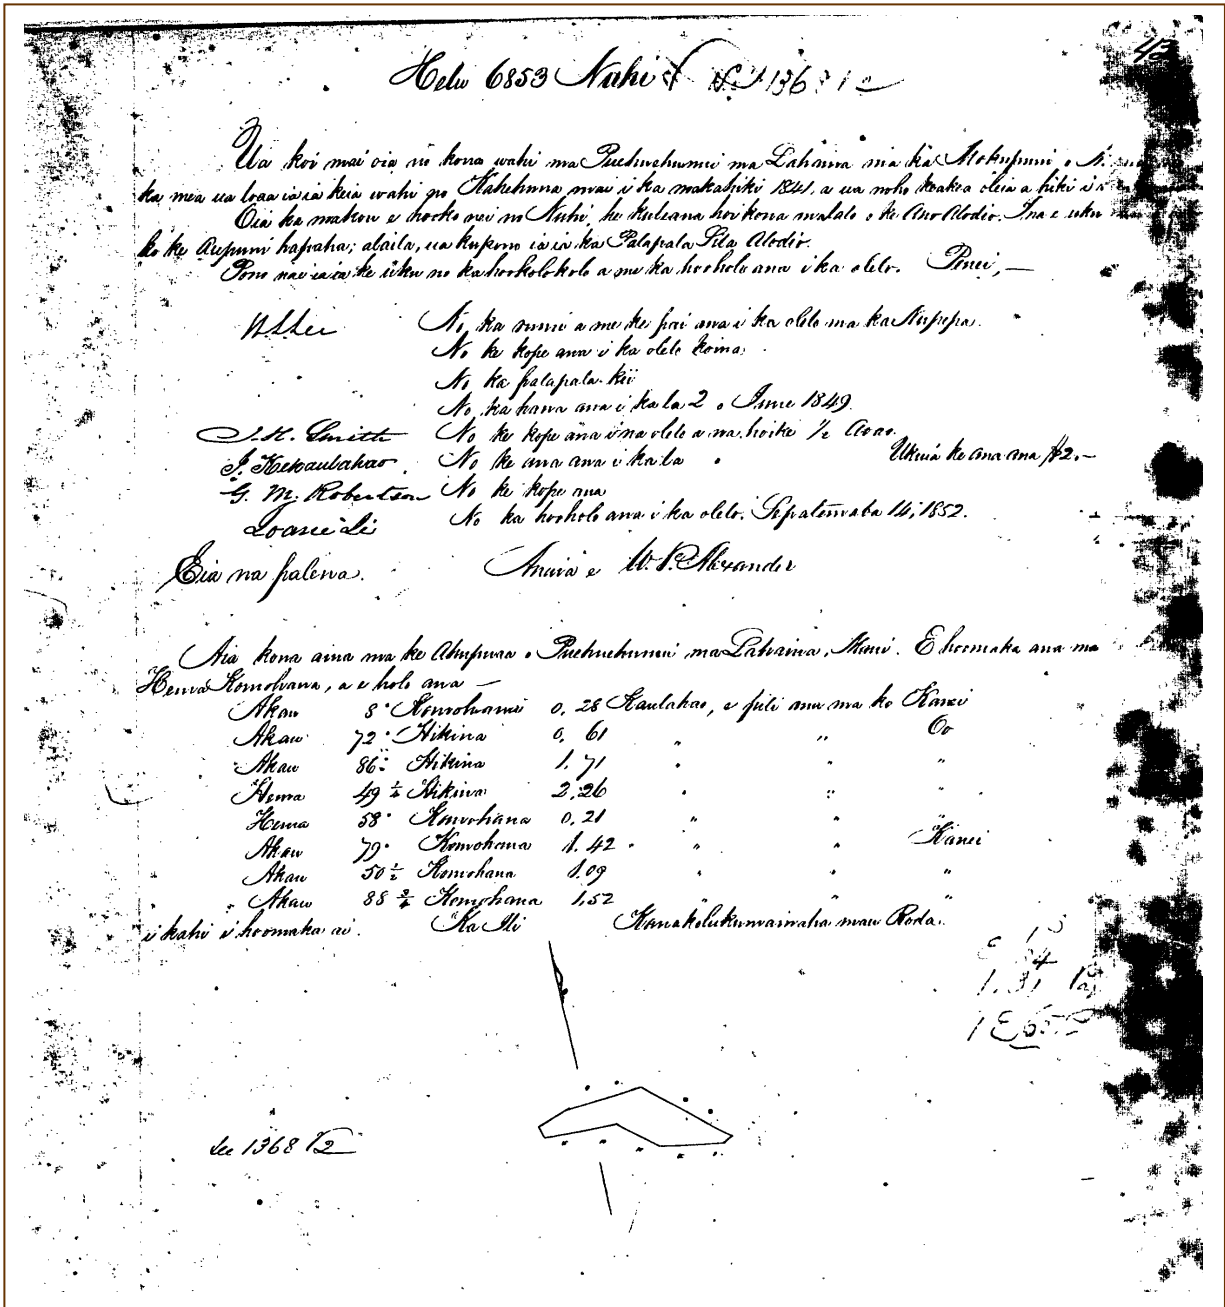 43
Helu 6853 Nuhi
Ua koi mai oia no kona wahi ma Puehuehunui ma Lahaina ma ka Mokupuni o
ka mea ua loaa ia ia keia wahi no Kahehuna mai i ka makahiki 1841, a ua noho keakea oleia a hiki i
Oia ka makou e hooko nei no Nuhi, he kuleana hoi kona malalo o ke Ano Alodio. Ina e uku
ko ke Aupuni hapaha; alaila, ua kupono ia ia ka Palapala Sila Alodio.
Pono nae ia ia ke uku no ka hookolokolo a me ka hooholo ana i ka olelo. Penei, —
No ka a me ke pai ana i ka olelo ma ka Nupepa.
No ke kope ana i ka olelo koina.
No ka palapala kii
No ka hana ana i ka la 2 o June 1849.
J. H. Smith No ke kope ana i na olelo a na hoike 1/2 Aoao.
J. Kekaulahao. No ke ana ana i ka la Ukuia ke ana ana $2.—
G. M. Robertson No ke kope ana
Loane Ii No ka hooholo ana i ka olelo. Sepatemaba 14, 1852.
Eia na palena. Anaia e W. P. Alexander
Aia kona aina ma ke Ahupuaa o Puehuehunui ma Lahaina, Maui. E hoomaka ana ma
Hema Komohana, a e holo ana —
Akau 8° Komohana 0.28 Kaulahao, e pili ana ma ko Kanei
Akau 72° Hikina 0.61 " " Oo
Akau 86° Hikina 1.71 " " "
Hema 49 1/2 Hikina 2.26 " " "
Hema 58° Komohana 0.21 " " "
Akau 79° Komohana 1.42 " " Kanei
Akau 50 1/2 Komohana 1.09 " " "
Akau 88 3/4 Komohana 1.52 " " "
i kahi i hoomaka ai. Ka Ili Kanakolukumamaha mau Roda.
See 1368 1/2